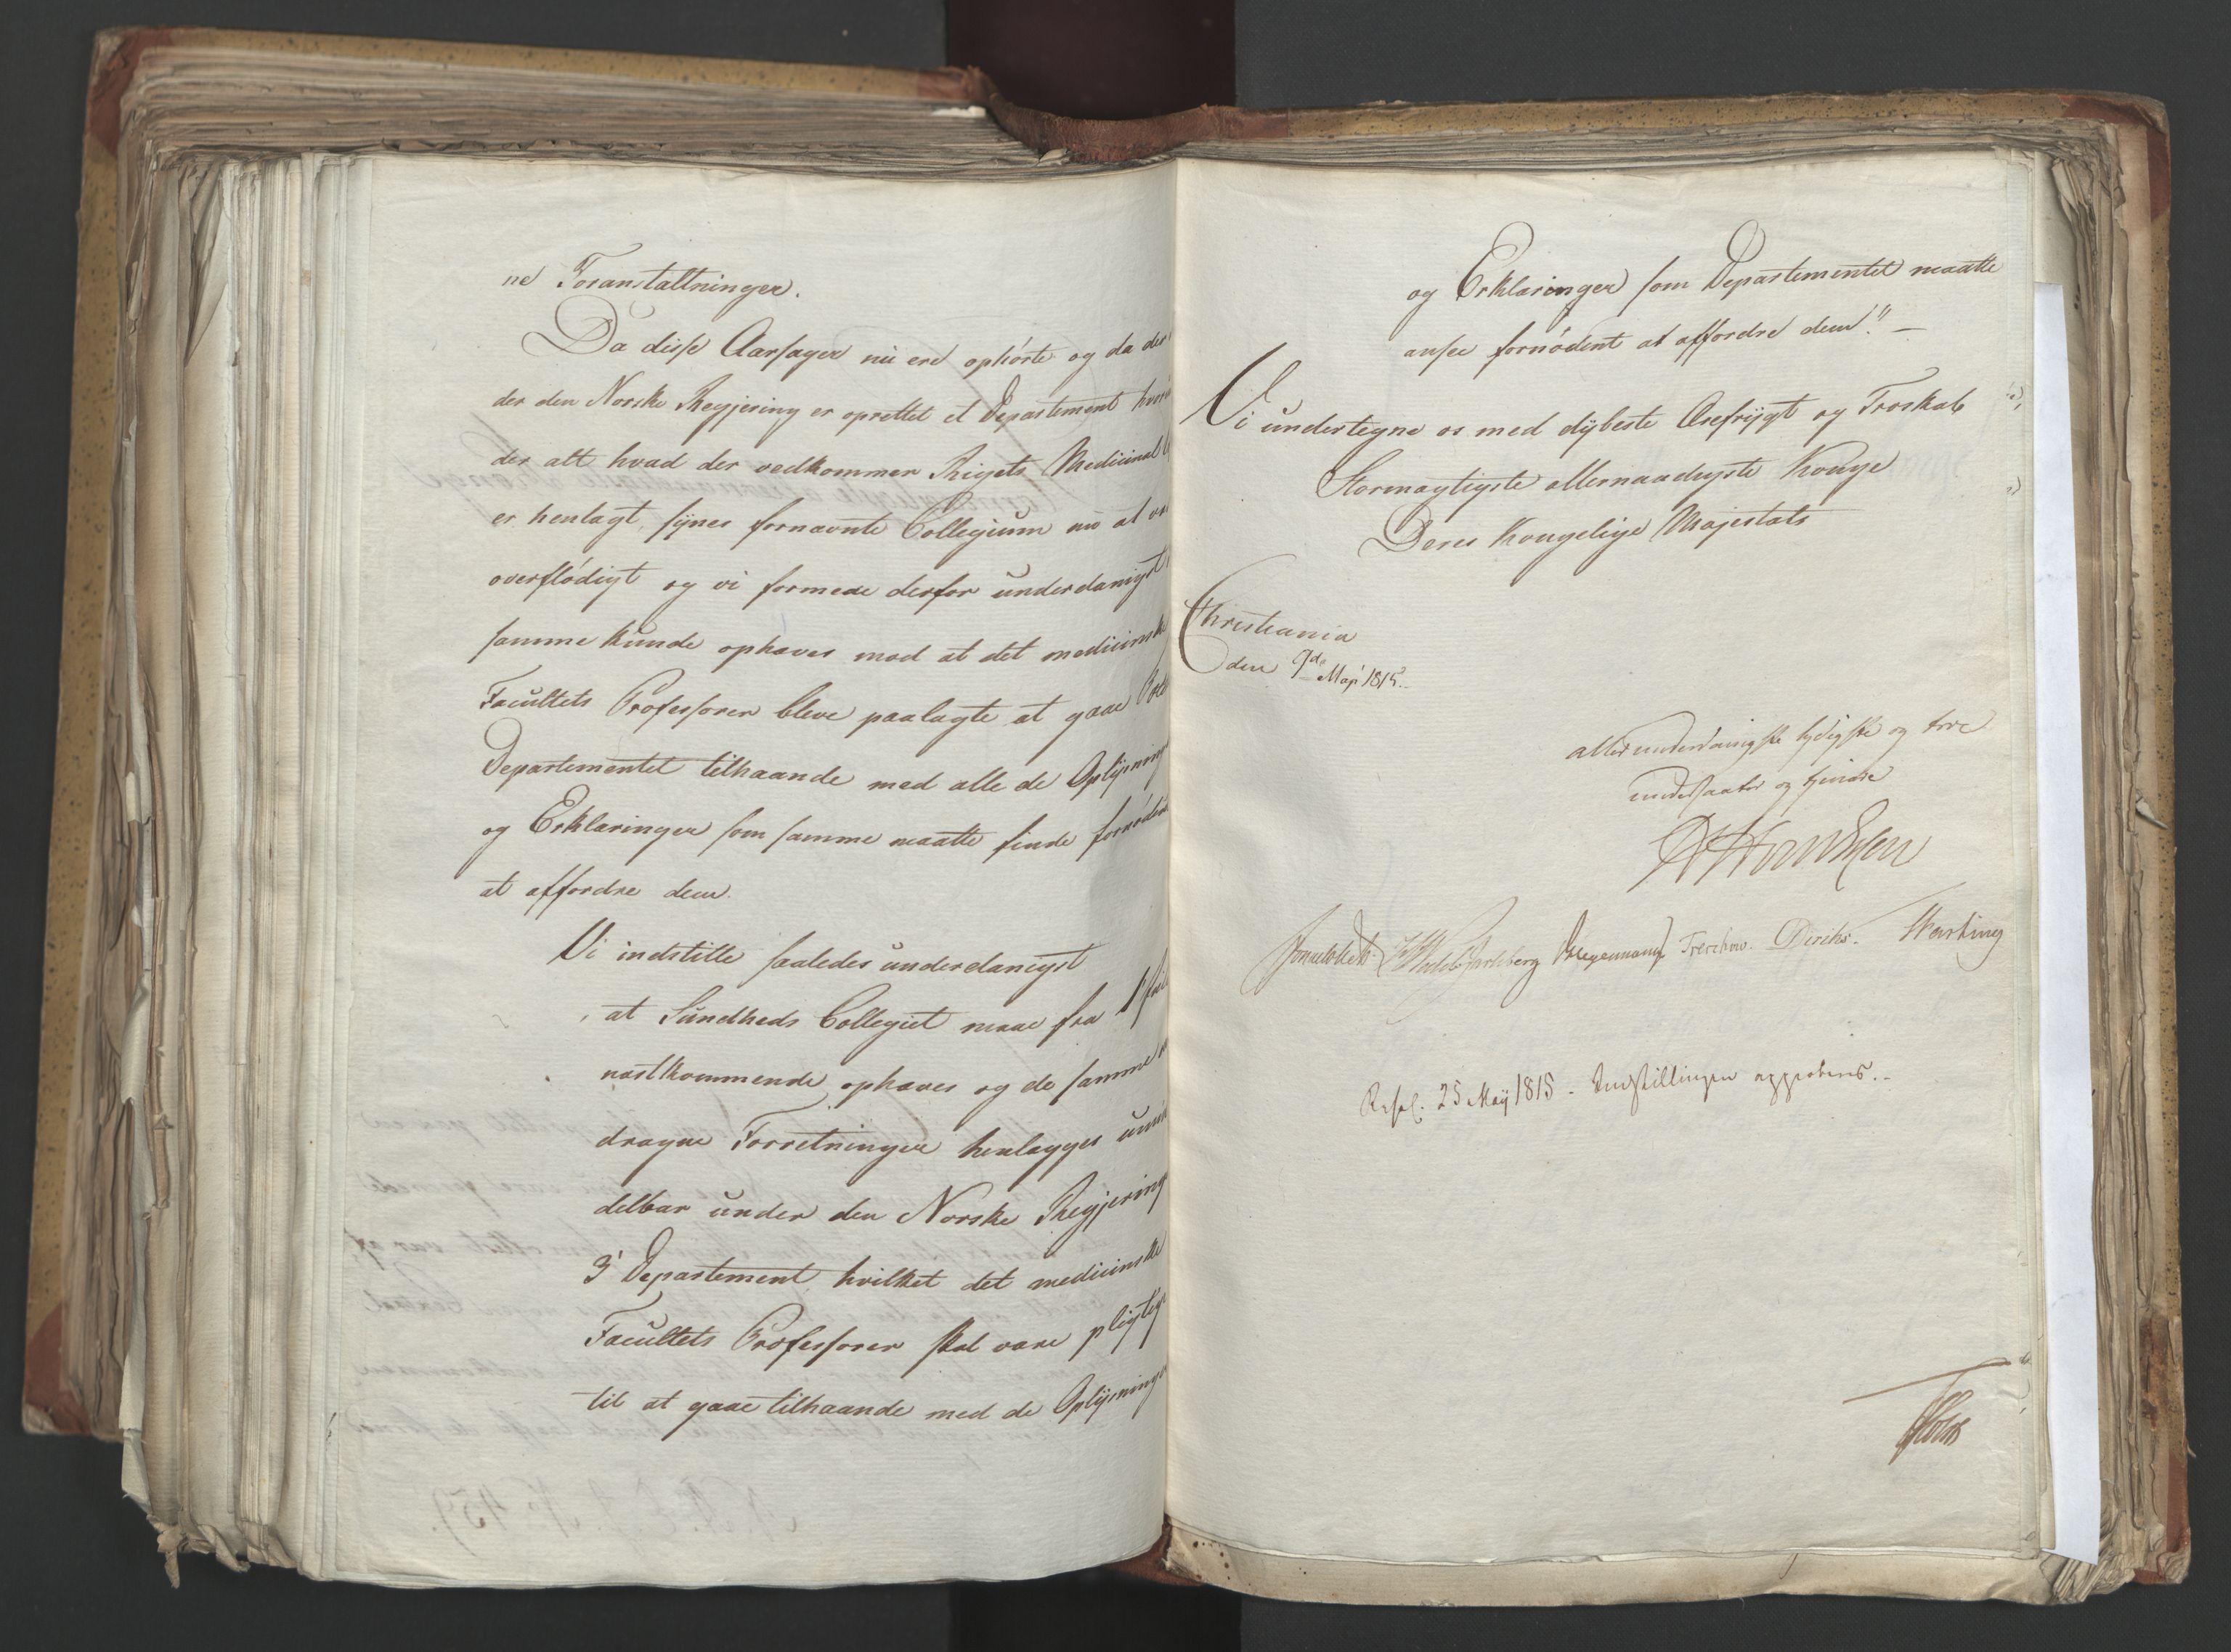 ne Foranstaltninger.
Da disse Aarsager nu ere ophørte og da der
der den Norske Regjering er oprettet et Departement
der alt hvad der vedkommer Rigets Medicinal
er henlagt, synes fornævnte Collegium nu at
overflødigt og vi formene derfor underdanigst
samme kunde ophæves mod at det medicinske
Facultets Professorer bleve paalagte at gaae
Departementet tilhaande med alle de Oplysning
og Erklæringer som samme maatte finde fornødent
at affordre dem.
Vi indstille saaledes underdanigst
at Sundheds Collegiet maae fra 1
næstkommende ophæves og de samme
dragne Forretninger henlægges umid
delbar under den Norske Regjering
3' Departement hvilket det medicinske
Facultets Professorer skal være pligtig
til at gaae tilhaande med de Oplysninger
og Erklæringer som Departementet maatte
ansee fornødent at affordre dem." —
Vi undertegne os med dybeste Ærefrygt og Troskab
Stormægtigste allernaadigste Konge
Deres Kongelige Majestæts
Christiania
den 9de May 1815.
allerunderdanigste lydigste og troe
undersaatter og tjenere
Sommerhielm Wedel Jarlsberg Hegermann Treschow. Diriks. Motzfeldt
Resol. 25 May 1815 - Indstillingen approberes. -
Holst